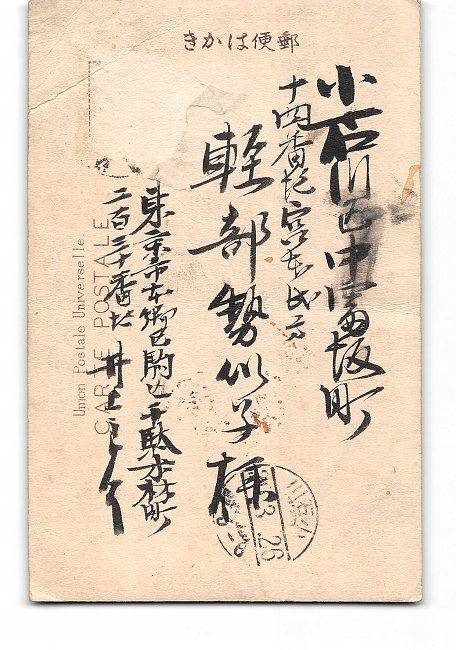 郵便はかき
小石川区中富坂町
十四番地宮本氏方
軽部勢似子様
東京市本郷区駒込千駄木林町
二百三十番地 井上
Union Postale Universelle.
CARTE POSTALE
小石川
3 26